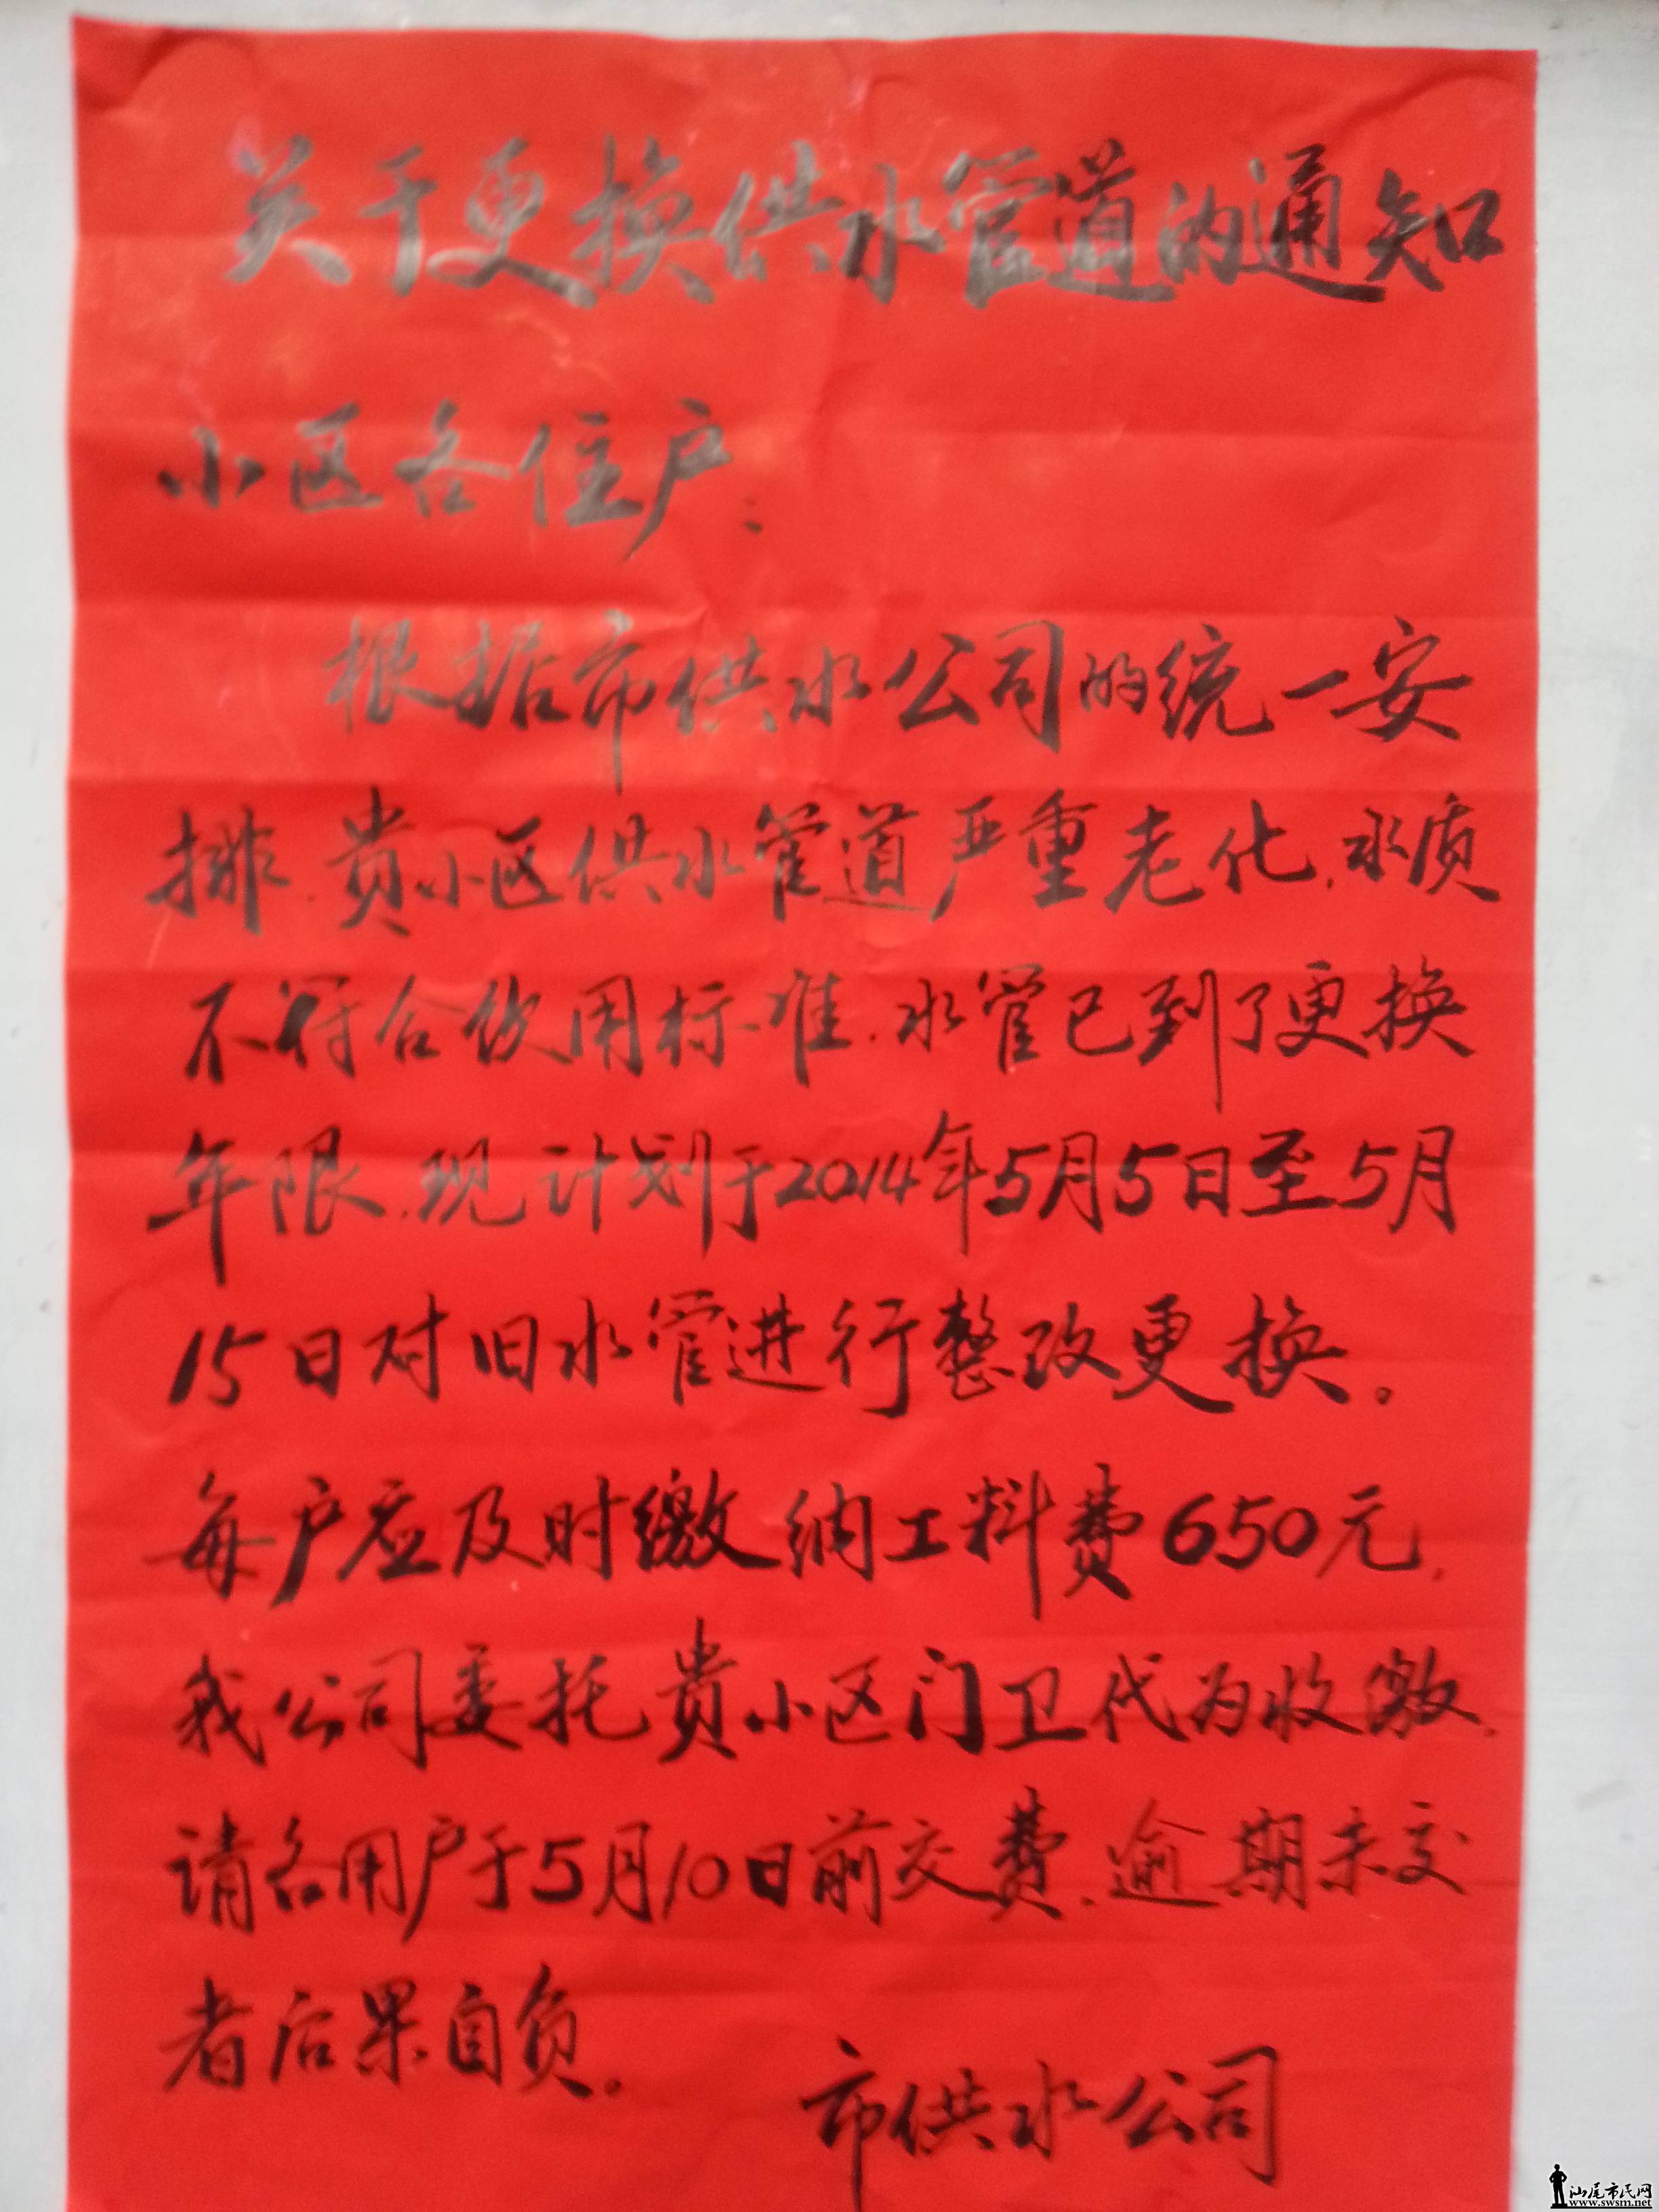 关于更换供水管道的通知
小区各住户：
根据市供水公司的统一安
排，贵小区供水管道严重老化，水质
不符合饮用标准，水管已到了更换
年限，现计划于2014年5月5日至5月
15日对旧水管进行整改更换。
每户应及时缴纳工料费650元，
我公司委托贵小区门卫代为收缴，
请各用户于5月10日前交费，逾期未交
者后果自负。
市供水公司
汕尾市民网
www.swsm.net